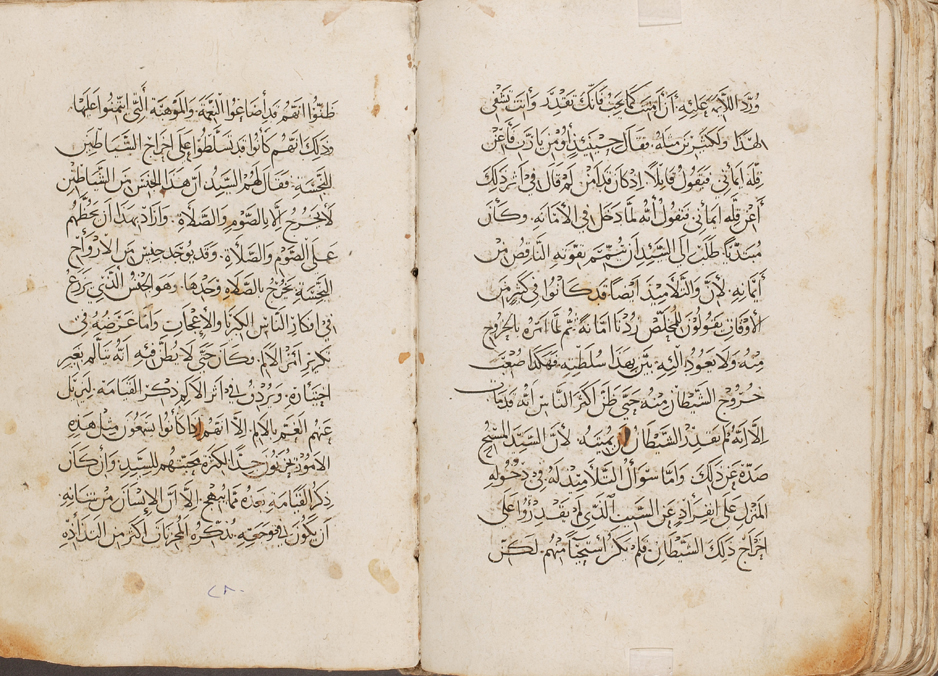 وردّ اللائمة عليه. ان امنت كما يجب فانك تقتدر وانت تشفي
لهذا ولكثير من مثله. فقال حينئذ اومن يا رب فاعن
قلة ايماني فيقول قايلا. اذ كان قد امن لم قال في اثر ذلك
اعن قلة ايماني فنقول انه لما دخل في الامانه. وكان
مبتديًا طلب الى السيد ان يتمم بقوته الناقص من
ايمانه. لان والتلاميذ ايضًا قد كانوا في كثير من
الاوقات يقولون للمخلص زدنا امانة ثم لما امره بالخروج
منه ولا يعود اليه بيّن بهذا سلطته. فهكذا صعب
خروج الشيطان منه حتى ظن اكثر الناس انه قد مات
الا انه لم يقتدر الشيطان ان يميته. لان السيد المسيح
صدّه عن ذلك واما سوال التلاميذ له في دخوله
المنزل على انفراد عن السبب الذي لم يقدروا على
اخراج ذلك الشيطان. فلم يكن استحيآء منهم. لكن
ظنوا انهم قد اضاعوا النعمة والموهبة التي ايتمنوا عليها.
وذلك انهم كانوا قد تسلطوا على اخراج الشياطين
النجسة. فقال لهم السيد ان هذا الجنس من الشياطين
لا يخرج الا بالصوم والصلاة. واراد بهذا ان يحضهم
على الصوم والصلاة. وقد يوجد جنس من الارواح
النجسة يخرج بالصلاة وحدها. وهو الجنس الذي يزرع
في افكار الناس الكبريآ والاعجاب واما غرضه في
تكرير امر الالم. فكان حتى لا يظن فيه انه يتالم بغير
اختياره. ويردف في اثر الالم ذكر القيامة. ليزيل
عنهم الغم بالالم. الا انهم اذا كانوا يسمعون مثل هذه
الامور يحزنون جدًا لكثرة محبتهم للسيد. وان كان
ذكر القيامة بعده مما يبهج. الا ان الانسان من شانه
ان يكون في توجعه. يذكره المحزنات اكثر من الملذة
٢٨٠